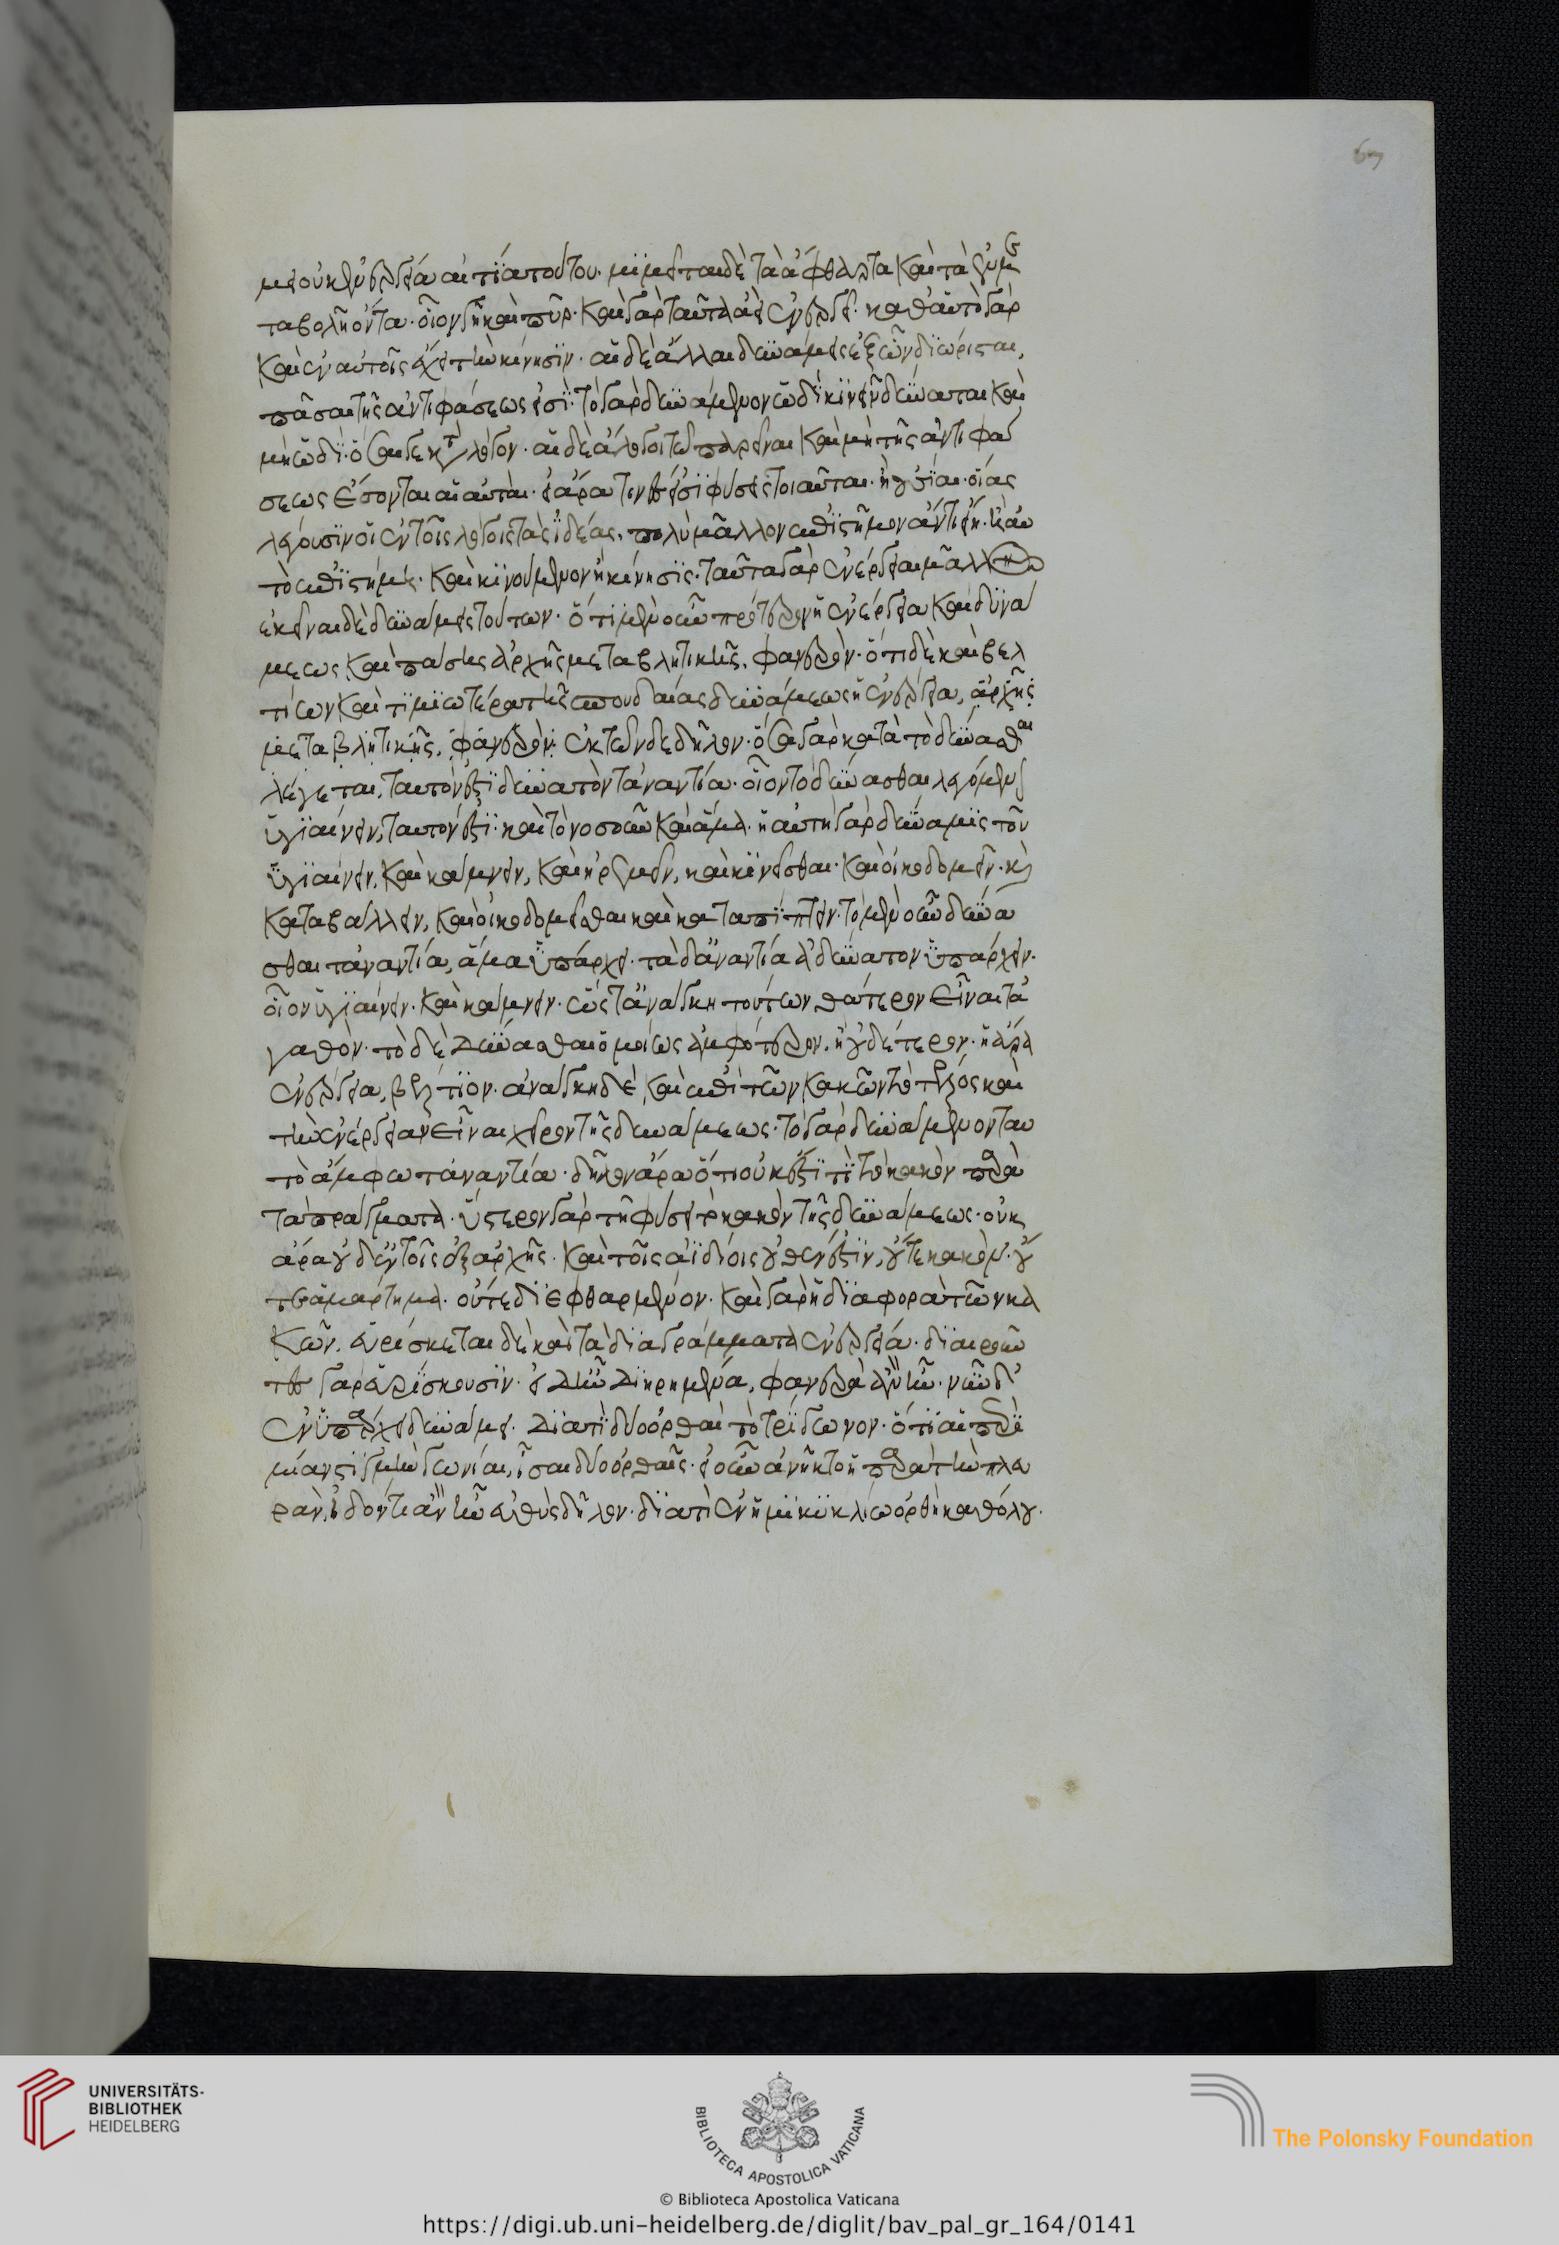 μει οὐκ ἐνεργεία αἰτία τούτου. μιμεῖται δὲ τὰ ἄφθαρτα καὶ τὰ ἐν με
ταβολῇ ὄντα. οἷον γῆ καὶ πῦρ. καὶ γὰρ ταῦτα ἀεὶ ἐνεργεῖ. καθ' αὑτὸ γὰρ
καὶ ἐν αὑτοῖς ἔχει τὴν κίνησιν. αἱ δὲ ἄλλαι δυνάμεις ἐξ ὧν διώρισται,
πᾶσαι τῆς ἀντιφάσεως εἰσί. τὸ γὰρ δυνάμενον ὡδὶ κινεῖν δύναται καὶ
μὴ ὡδί. ὅσα γε κατὰ λόγον. αἱ δὲ ἄλογοι τῶ παρεῖναι καὶ μὴ τῆς ἀντιφά
σεως ἔσονται αἱ αὐταί. εἰ ἄρα τινές εἰσι φύσεις τοιαῦται. ἢ οὐσίαι. οἵας
λέγουσιν οἱ ἐν τοῖς λόγοις τὰς ἰδέας, πολὺ μᾶλλον ἐπιστῆμον ἄν τι εἴη. ἢ αὐ
τὸ ἐπιστήμη. καὶ κινούμενον ἢ κίνησις. ταῦτα γὰρ ἐνέργειαι μᾶλλον
ἐκεῖναι δὲ δυνάμεις τούτων. ὅτι μὲν οὖν πρότερον ἡ ἐνέργεια καὶ δυνά
μεως καὶ πάσης ἀρχῆς μεταβλητικῆς, φανερόν. ὅτι δὲ καὶ βελ
τίων καὶ τιμιωτέρα τῆς σπουδαίας δυνάμεως ἡ ἐνέργεια, ἀρχῆς
μεταβλητικῆς, φανερὸν ἐκ τῶνδε δῆλον. ὅσα γὰρ κατὰ τὸ δύνασθαι
λέγεται, ταυτόν ἐστι δυνατὸν τἀναντία. οἷον τὸ δύνασθαι λεγόμενον
ὑγιαίνειν, ταυτόν ἐστι καὶ τὸ νοσοῦν καὶ ἅμα. ἡ αὐτὴ γὰρ δύναμις τοῦ
ὑγιαίνειν, καὶ κάμνειν, καὶ ἠρεμεῖν, καὶ κινεῖσθαι. καὶ οἰκοδομεῖν. καὶ
καταβάλλειν, καὶ οἰκοδομεῖσθαι καὶ καταπίπτειν. τὸ μὲν οὖν δύνα
σθαι τἀναντία, ἅμα ὑπάρχει. τὰ δ' ἀναντία ἀδύνατον ὑπάρχειν.
οἷον ὑγιαίνειν. καὶ κάμνειν. ὥστ' ἀνάγκη τούτων θάτερον εἶναι τἀ
γαθόν. τὸ δὲ δύνασθαι ὁμοίως ἀμφότερον. ἢ οὐδέτερον. ἡ ἄρα
ἐνέργεια, βελτίον. ἀνάγκη δὲ καὶ ἐπὶ τῶν κακῶν τὸ τέλος καὶ
τὴν ἐνέργειαν εἶναι χεῖρον τῆς δυνάμεως. τὸ γὰρ δυνάμενον ταυ
τὸ ἄμφω τἀναντία. δῆλον ἄρα ὅτι οὐκ ἔστι τι τὸ κακὸν παρὰ
τὰ πράγματα. ὕστερον γὰρ τῆ φύσει τὸ κακὸν τῆς δυνάμεως. οὐκ
ἄρα οὐδ' ἐν τοῖς ἐξαρχῆς. καὶ τοῖς ἀϊδίοις οὐθέν ἐστιν, οὔτε κακὸν. οὔ
τε ἁμάρτημα. οὔτε διεφθαρμένον. καὶ γὰρ ἡ διαφορὰ τῶν κα
κῶν. εὑρίσκεται δὲ καὶ τὰ διαγράμματα ἐνεργεία. διαιροῦν
τες γὰρ εὑρίσκουσιν. εἰ δ' ἦν διηρημένα, φανερὰ ἂν ἦν. νῦν δ'
ἐνυπάρχει δυνάμει. διατὶ δύο ὀρθαὶ τὸ τρίγωνον. ὅτι αἱ περὶ
μίαν στιγμὴν γωνίαι, ἴσαι δύο ὀρθαῖς. εἰ οὖν ἀνῆκτο ἡ παρὰ τὴν πλευ
ράν, ἰδόντι ἂν ἦν εὐθὺς δῆλον. διατὶ ἐν ἡμικυκλίω ὀρθὴ καθόλου.
67
UNIVERSITÄTS-
BIBLIOTHEK
HEIDELBERG
BIBLIOTECA APOSTOLICA VATICANA
The Polonsky Foundation
© Biblioteca Apostolica Vaticana
https://digi.ub.uni-heidelberg.de/diglit/bav_pal_gr_164/0141